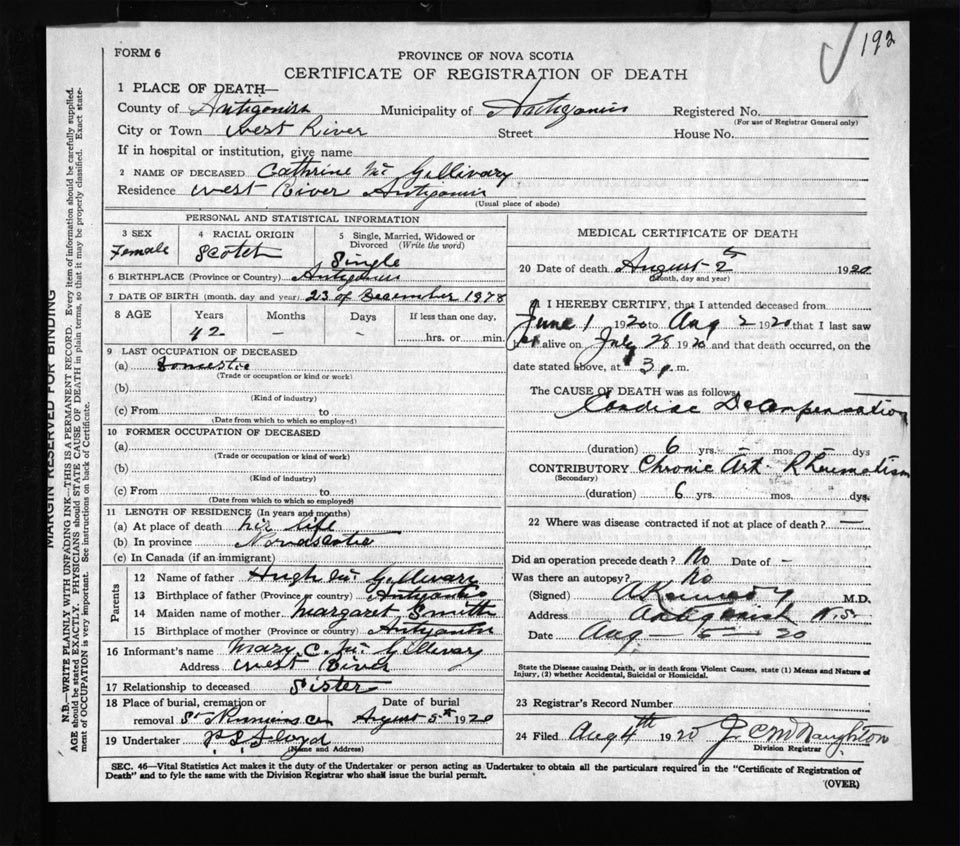 192
FORM 6
PROVINCE OF NOVA SCOTIA
CERTIFICATE OF REGISTRATION OF DEATH
1 PLACE OF DEATH—
County of Antigonish Municipality of Antigonish Registered No.
(For use of Registrar General only)
City or Town West River Street House No.
If in hospital or institution, give name
2 NAME OF DECEASED Cathrine Mc Gillivary
Residence West River Antigonish
(Usual place of abode)
PERSONAL AND STATISTICAL INFORMATION
3 SEX 4 RACIAL ORIGIN 5 Single, Married, Widowed or Divorced (Write the word)
Female Scotch Single
6 BIRTHPLACE (Province or Country) Antigonish
7 DATE OF BIRTH (month, day and year) 23 of December 1978
8 AGE Years Months Days If less than one day,
42 — — hrs. or min.
9 LAST OCCUPATION OF DECEASED
(a) Domestic
(Trade or occupation or kind or work)
(b)
(Kind of industry)
(c) From to
(Date from which to which so employed)
10 FORMER OCCUPATION OF DECEASED
(a)
(Trade or occupation or kind of work)
(b)
(Kind of industry)
(c) From to
(Date from which to which so employed)
11 LENGTH OF RESIDENCE (In years and months)
(a) At place of death hir life
(b) In province Novascotia
(c) In Canada (if an immigrant)
Parents
12 Name of father Hugh Mc Gillivary
13 Birthplace of father (Province or country) Antigonish
14 Maiden name of mother Margaret Smith
15 Birthplace of mother (Province or country) Antigonish
16 Informant's name Mary C. Mc Gillivary
Address West River
17 Relationship to deceased Sister
18 Place of burial, cremation or removal Date of burial
St Cem August 5th 1920
19 Undertaker P S Floyd
(Name and Address)
MEDICAL CERTIFICATE OF DEATH
20 Date of death August 2th 1920
(Month, day and year)
I HEREBY CERTIFY, that I attended deceased from
June 1 1920 to Aug 2 1920 that I last saw
her alive on July 28 1920 and that death occurred, on the
date stated above, at 3 p. m.
The CAUSE OF DEATH was as follows:
Cardiac Decompensation
(duration) 6 yrs. mos. dys
CONTRIBUTORY Chronic Art. Rheumatism
(Secondary)
(duration) 6 yrs. mos. dys.
22 Where was disease contracted if not at place of death? —
Did an operation precede death? No Date of —
Was there an autopsy? No
(Signed) M.D.
Address Antigonish N.S.
Date Aug — 5 — 20
State the Disease causing Death, or in death from Violent Causes, state (1) Means and Nature of Injury, (2) whether Accidental, Suicidal or Homicidal.
23 Registrar's Record Number
24 Filed Aug 4th 1920 J. C McNaughton
Division Registrar
SEC. 46—Vital Statistics Act makes it the duty of the Undertaker or person acting as Undertaker to obtain all the particulars required in the "Certificate of Registration of
Death" and to fyle the same with the Division Registrar who shall issue the burial permit.
(OVER)
MARGIN RESERVED FOR BINDING
N.B.—WRITE PLAINLY WITH UNFADING INK—THIS IS A PERMANENT RECORD. Every item of information should be carefully supplied.
AGE should be stated EXACTLY. PHYSICIANS should STATE CAUSE OF DEATH in plain terms, so that it may be properly classified. Exact state-
ment of OCCUPATION is very important. See instructions on back of Certificate.